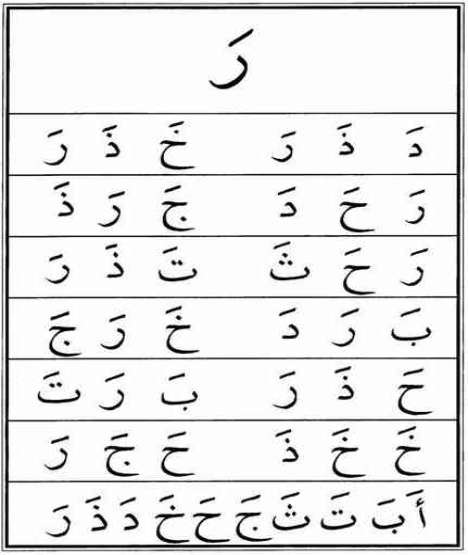 رَ
دَ ذَ رَ خَ ذَ رَ
رَ حَ دَ جَ رَ ذَ
رَ حَ ثَ تَ ذَ رَ
بَ رَ دَ خَ رَ جَ
حَ ذَ رَ بَ رَ تَ
خَ خَ ذَ حَ جَ رَ
أَ بَ تَ ثَ جَ حَ خَ دَ ذَ رَ